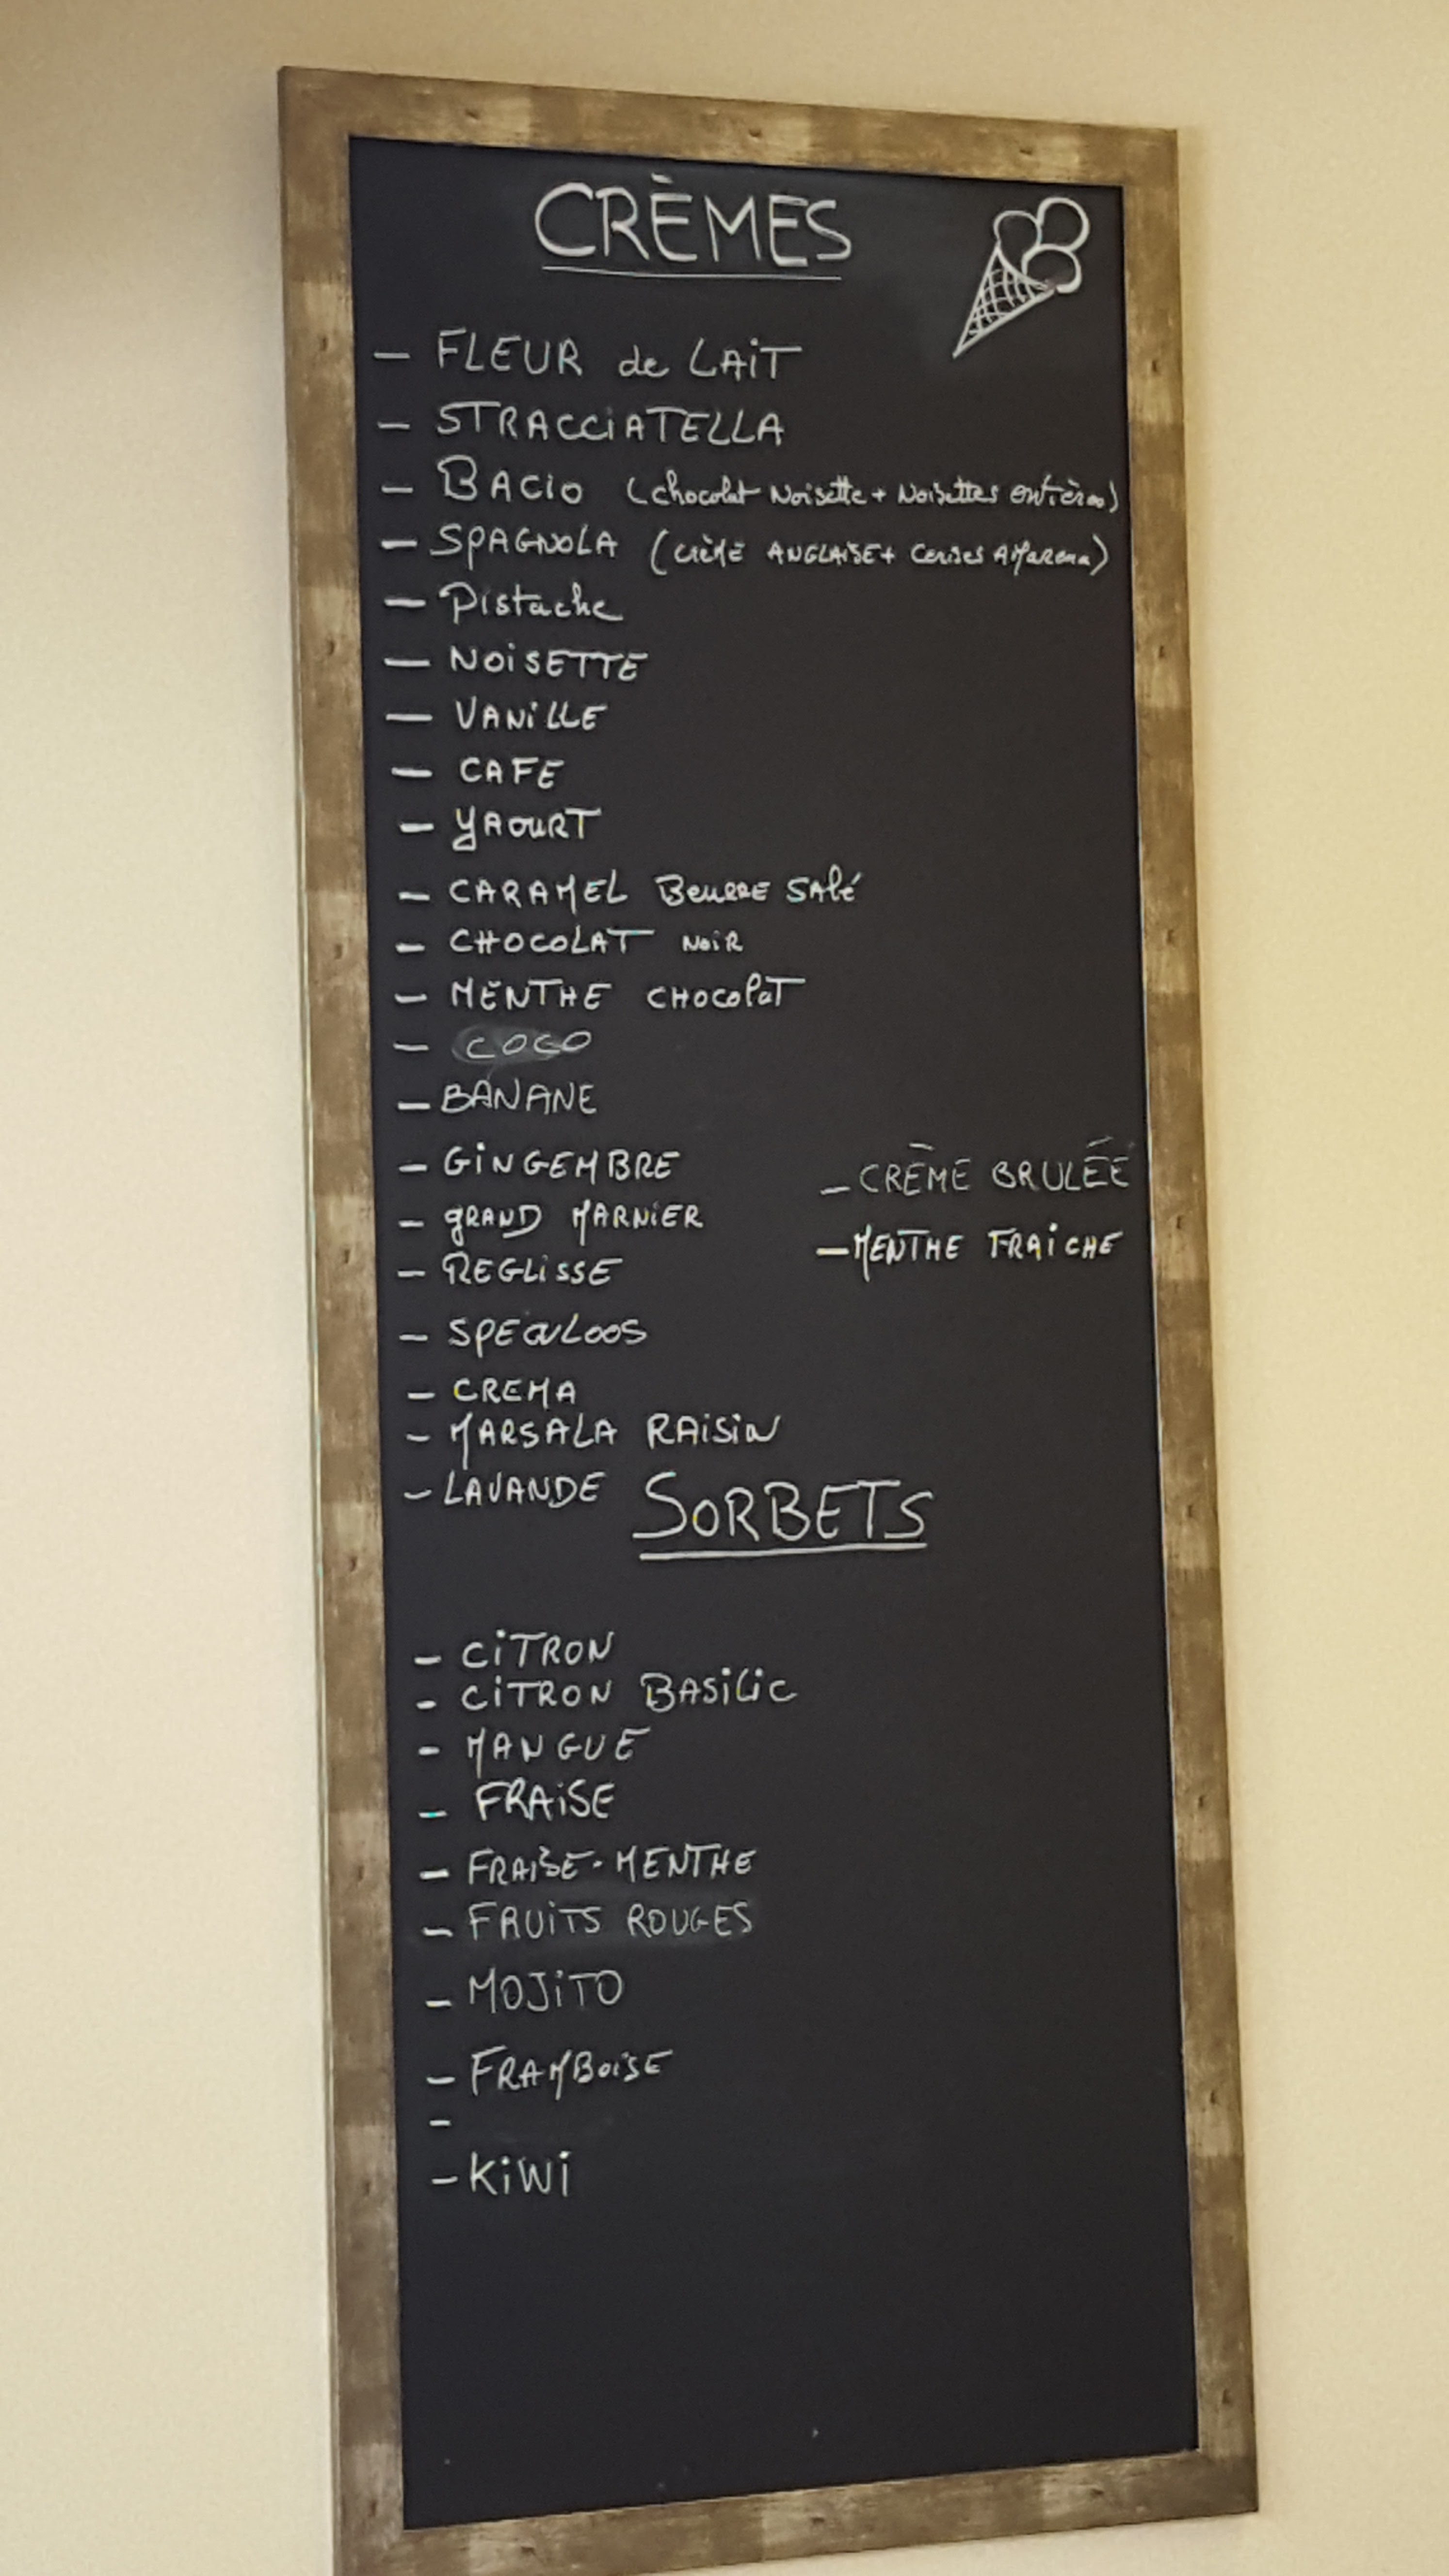 CRÈMES
– FLEUR de LAiT
– STRACCiATELLA
– BACIO (chocolat Noisette + Noisettes entières)
– SPAGNOLA (crème ANGLAISE + Cerises AMarena)
– Pistache
– NOiSETTE
– VANiLLE
– CAFE
– YAOURT
– CARAMEL BeuRRE SAlé
– CHOCOLAT NOiR
– MENTHE CHOCOlaT
– COCO
– BANANE
– GiNGEMBRE
– gRAND MARNiER
– REGLiSSE
– SPECULOOS
– CREMA
– MARSALA RAiSiN
– LAVANDE
– CRÈME BRULÉE
– MENTHE FRAiCHE
SORBETS
– CiTRON
– CiTRON BASiLic
– MANGUE
– FRAiSE
– FRAiSE-MENTHE
– FRUiTS ROUGES
– MOJiTO
– FRAMBoiSE
–
– KiWi